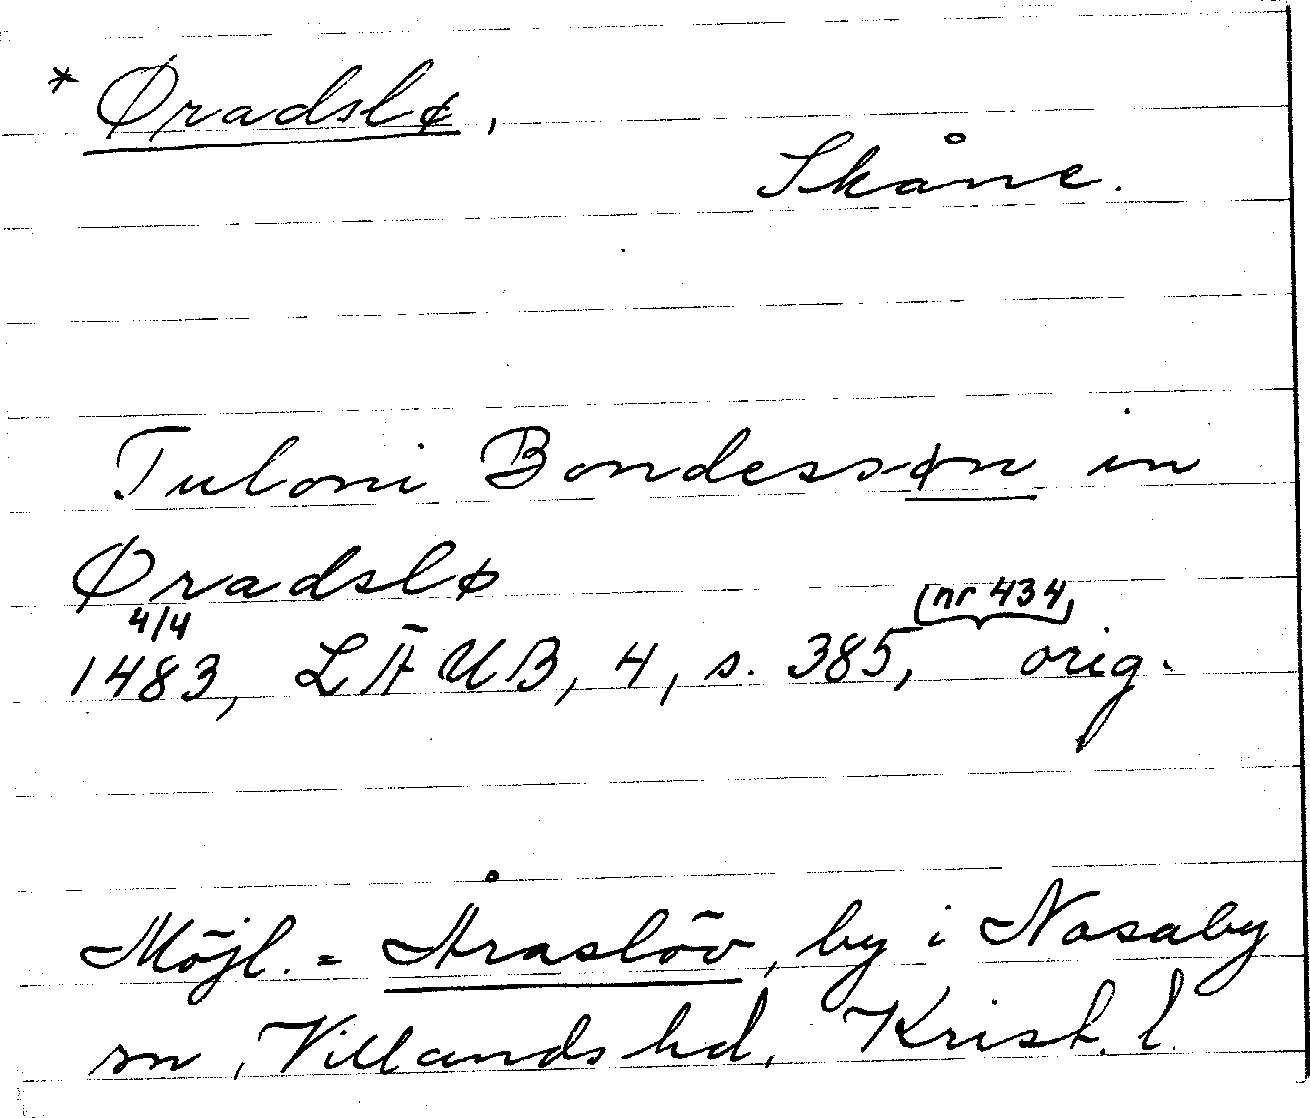 * Øradslø,
Skåne.
Tuloni Bondessøn in
Øradslø
4/4 (nr 434)
1483, LÄUB, 4, s. 385, orig.
Möjl. = Åraslöv, by i Nosaby
sn, Villands hd, Krist. l.